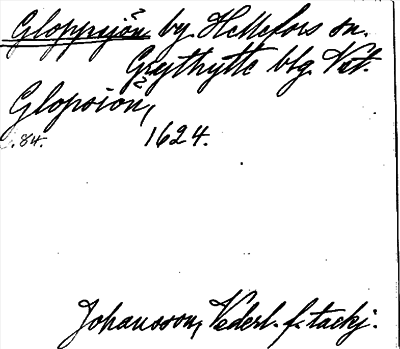 Gloppsjön by Hellefors sn.
Grythytte blg Vstm.
Glopsiön,
s. 84. 1624.
Johansson, Vederl. f. tackj.